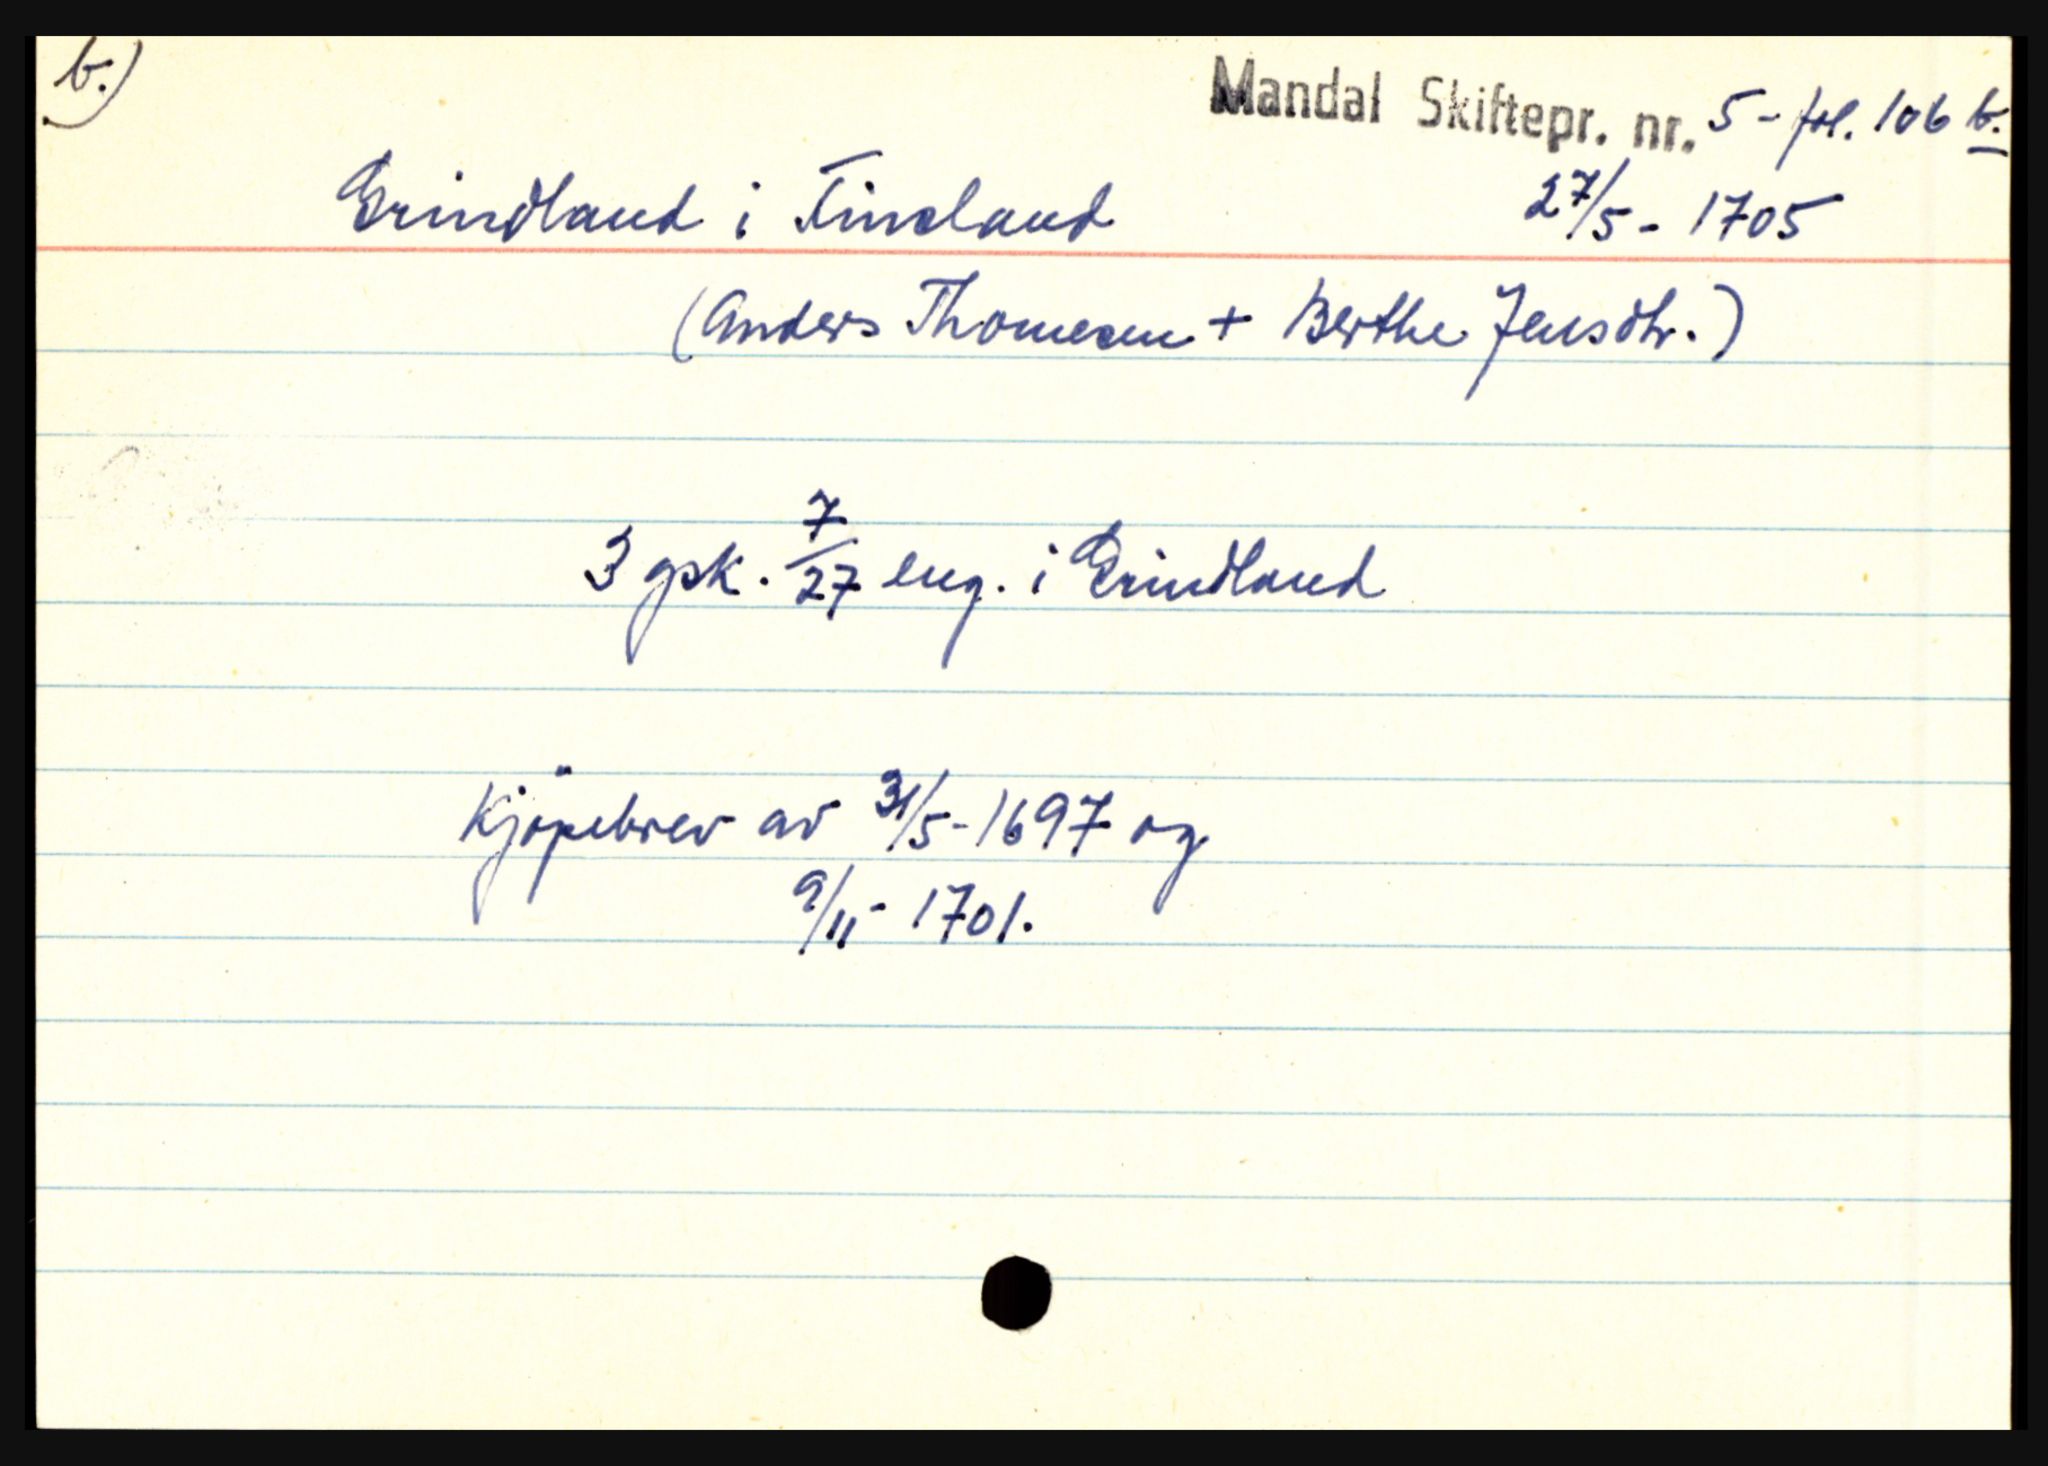 b.)
Mandal Skiftepr. nr. 5 - fol. 106 b.
Grindland i Finsland 27/5 - 1705
(Anders Thomesen + Berthe Jensdtr.)
3 gsk. 7/27 eng. i Grindland
Kjöpebrev av 31/5 - 1697 og
9/11 - 1701.